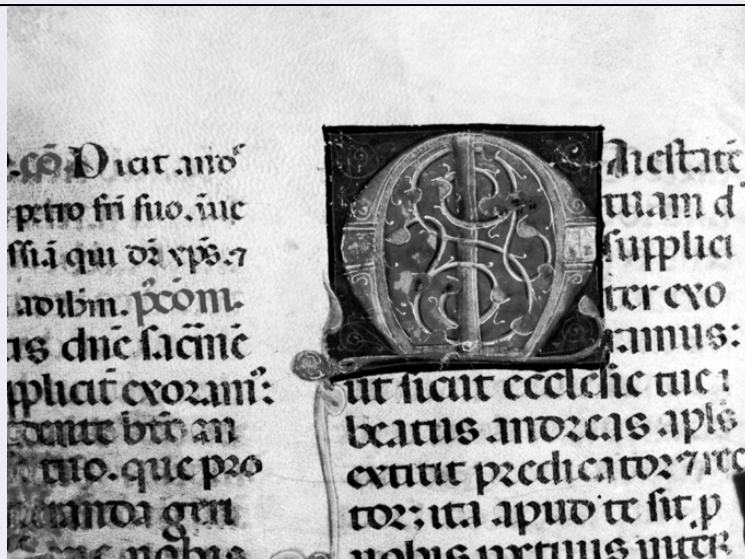 cō Dicit anꝺ᷒
petro fri suo. iue
ssiā qui dr̄ xp̄s. ⁊
ad ih̄m. p̄com.
as dn̄e sac̄ne
pplicit̄ exoram᷒:
dente bt̄o an
tuo. que pro
anda gen
nobis
Maiestatē
tuam d᷒
supplici
ter exo
ramus:
ut sicut ecclesie tue
beatus andreas apl̄s
extitit predicator ⁊ rec
tor: ita apud te sit p
nobis petuus inter